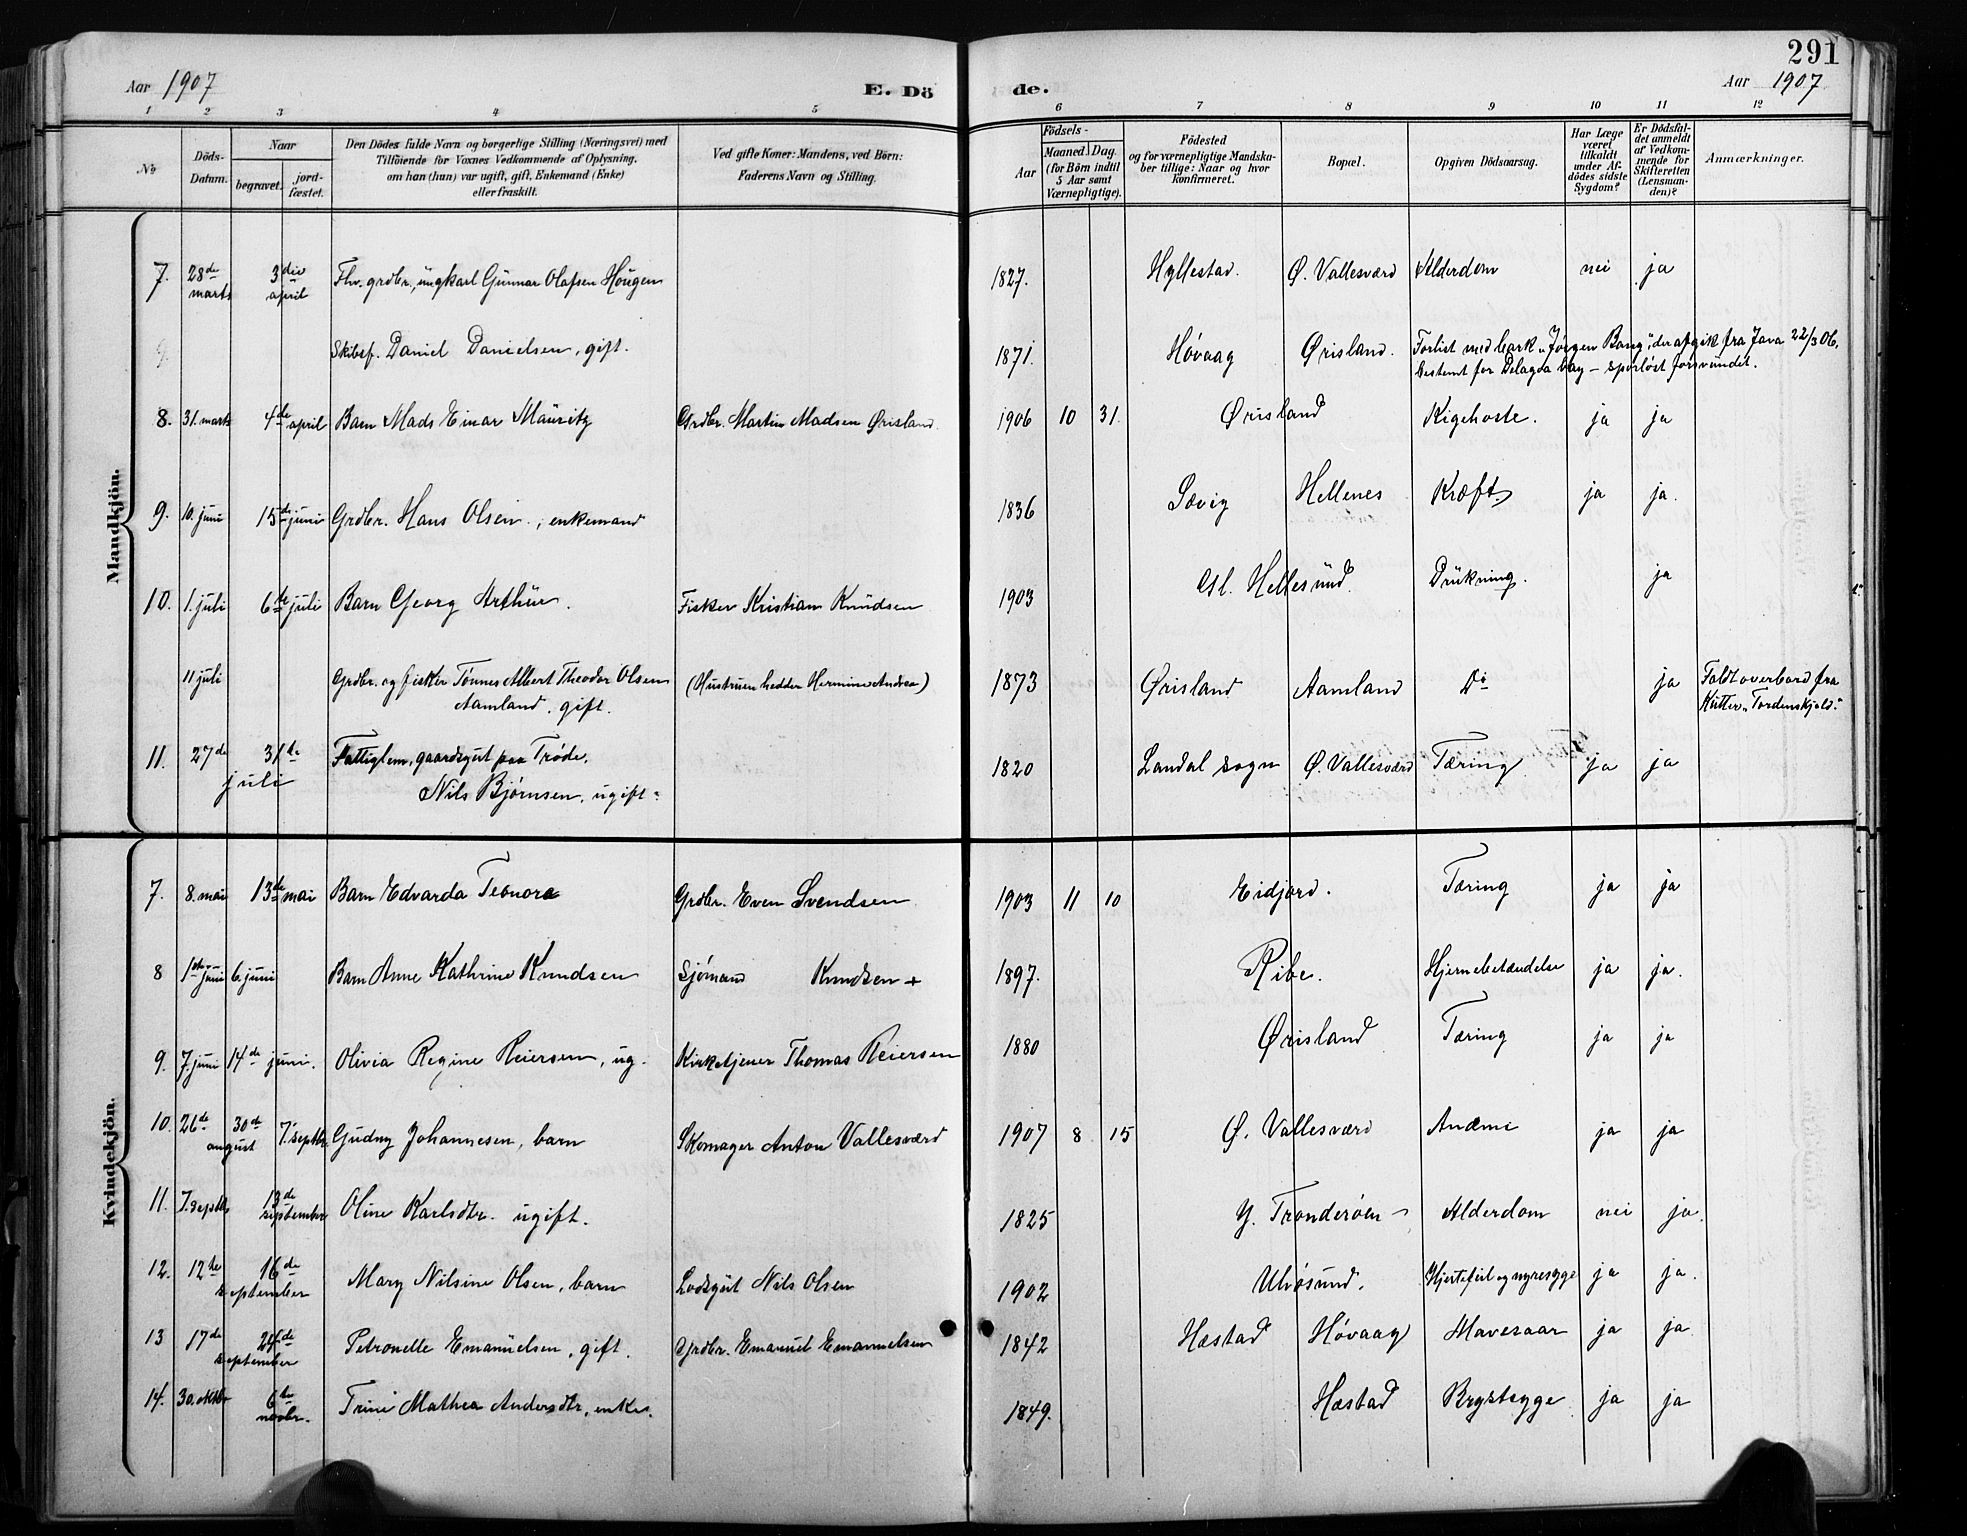 291
Aar 1907 E. Döde. Aar 1907
1 2 3 4 5 6 7 8 9 10 11 12
No
Döds-Datum.
Naar
begravet. jord-fæstet.
Den Dödes fulde Navn og borgerlige Stilling (Næringsvei) med
Tilföiende for Voxnes Vedkommende af Oplysning.
om han (hun) var ugift, gift, Enkemand (Enke)
eller fraskilt.
Ved gifte Koner: Mandens, ved Börn:
Faderens Navn og Stilling.
Födsels-
Aar
Maaned. Dag.
(for Börn indtil
5 Aar samt
Værnepligtige).
Födested
og for værnepligtige Mandska-
ber tillige: Naar og hvor
konfirmeret.
Bopæl.
Opgiven Dödsaarsag.
Har Læge
været
tilkaldt
under Af-
dödes sidste
Sygdom?
Er Dödsfal-
det anmeldt
af Vedkom-
mende for
Skifteretten
(Lensman-
den)?
Anmærkninger.
Mandkjön.
7. 28de marts 3die april Fhv. grdbr., ungkarl Gunnar Olafsen Hougen 1827. Hyllestad. Ø. Vallesværd Alderdom nei ja
Skibsf. Daniel Danielsen, gift. 1871. Høvaag Ørisland. Forlist med bark "Jørgen Bang", der afgik fra Java 22/3 06,
bestemt for Delagoa bay – sporløst forsvundet.
8. 31. marts 4de april Barn Mads Einar Mauritz Grdbr. Martin Madsen Ørisland. 1906 10 31. Ørisland Kigehoste. ja ja
9. 10. juni 15de juni Grdbr. Hans Olsen., enkemand 1836 Sævig Hellenes Kræft ja ja.
10. 1. juli 6te juli Barn Georg Arthur. Fisker Kristian Knudsen 1903 Gl. Hellesund. Drukning. ja
11 juli Grdbr. og fisker Tønnes Albert Theodor Olsen (Hustruen hedder Hermine Andrea) 1873 Ørisland Aamland Do ja Faldt overbord fra
Aamland. gift. Kutter "Tordenskjold."
11. 27de 31te juli Fattiglem, gaardsgut paa Trøde. 1820 Landal sogn Ø. Vallesværd Tæring ja ja
Nils Bjørnsen, ugift.
Kvindekjön.
7. 8. mai 13de mai Barn Edvarda Teonora Grdbr. Even Svendsen 1903 11 10 Eidjord. Tæring ja ja
8 1ste juni 6. juni Barn Anne Kathrine Knudsen Sjømand Knudsen + 1897. Ribe. Hjernebetændelse ja ja.
9. 7. juni 14de juni. Olivia Regine Reiersen, ug. Kirketjener Thomas Reiersen 1880 Ørisland Tæring ja ja
10. 26de 30de august 7. septbr. Gudny Johannesen, barn Skomager Anton Vallesværd 1907 8 15 Ø. Vallesværd Anæmi ja ja
11. 7. septbr 13de september Oline Karlsdtr. ugift. 1825 Y. Tronderøen Alderdom nei ja.
12. 12te 16de september Mary Nilsine Olsen, barn Lodsgut Nils Olsen 1902 Ulvøsund. Hjertefeil og nyresyge ja ja.
13 17de 24de september Petronelle Emanuelsen, gift. Grdbr. Emanuel Emanuelsen 1842 Hæstad Høvaag Mavesaar ja ja.
14. 30. oktbr 6te novbr. Trine Mathea Andersdtr, enke. 1849. Hæstad Brystsyge ja ja